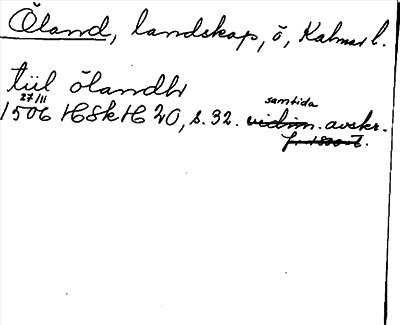 Öland, landskap, ö, Kalmar l.
tiil ölandh
27/11
samtida
1506 HSkH 20, s. 32. vidim. avskr.
fr. 1500-t.